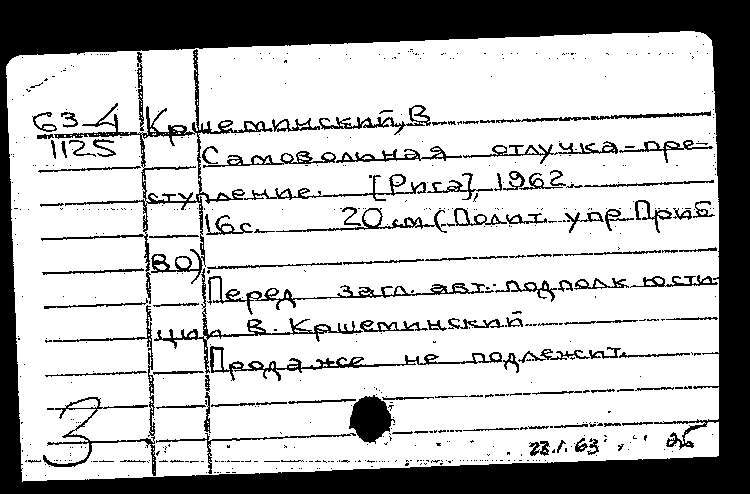 63-4 Кршеминский, В
1125
Самовольная отлучка-пре-
ступление. [Рига], 1962.
16с. 20 см (Полит. упр Приб
ВО)
Перед загл. авт.: подполк юсти
ции В. Кршеминский
Продаже не подлежит.
3
23.1.63